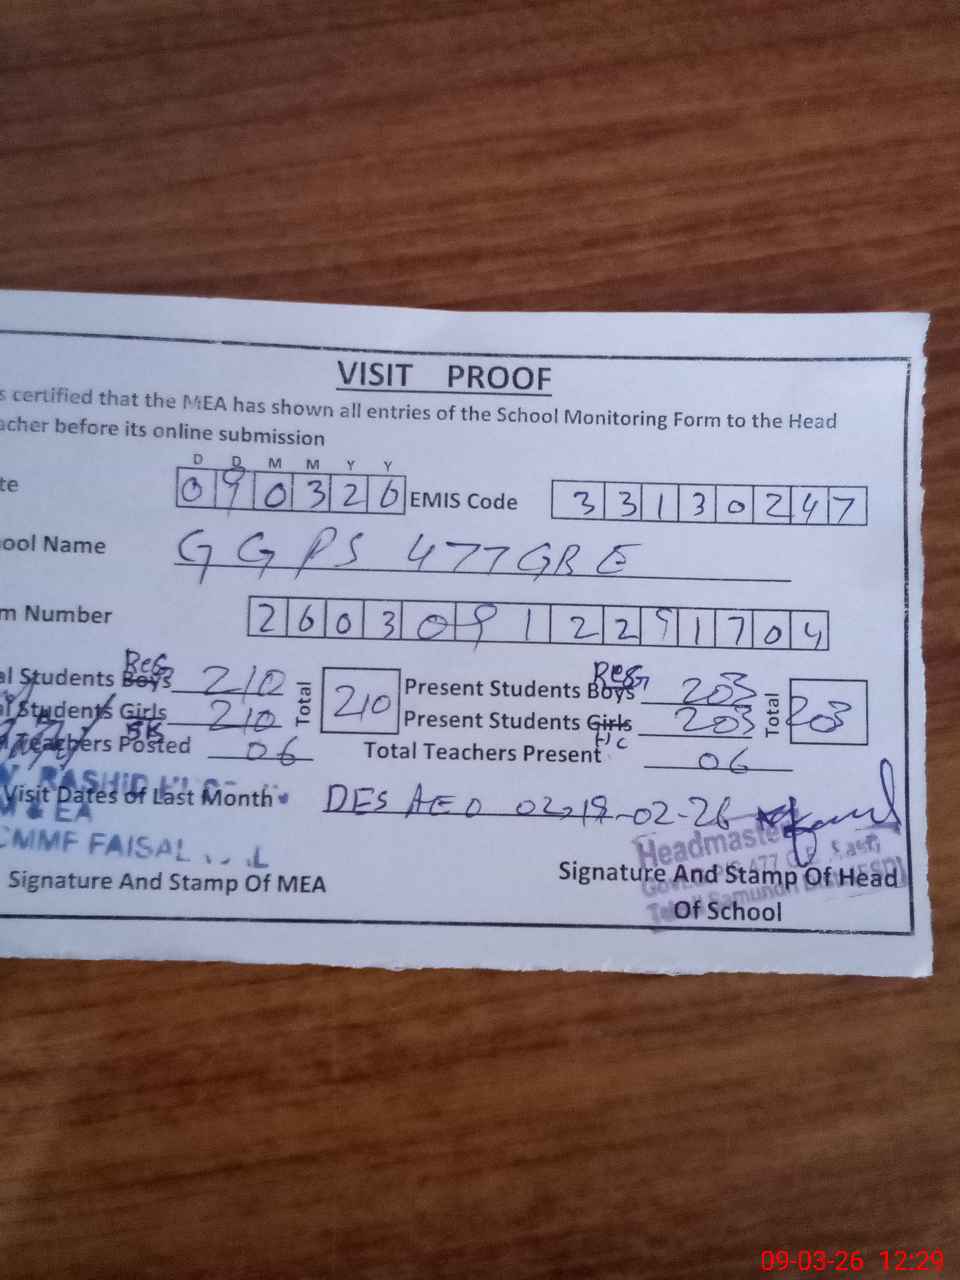 VISIT PROOF
s certified that the MEA has shown all entries of the School Monitoring Form to the Head
acher before its online submission
D D M M Y Y
te 090326 EMIS Code 33130247
ool Name GGPS 477GB E
m Number 26030912291704
al Students Boys Reg 210 Total 210 Present Students Boys Reg 203 Total 203
Students Girls 210 Present Students Girls H/C 203
Teachers Posted 06 Total Teachers Present 06
RASHID
Visit Dates of Last Month DES AEO 02,19-02-26
MEA
CMMF FAISAL
Headmaste
Signature And Stamp Of MEA
Signature And Stamp Of Head
Of School
09-03-26 12:29